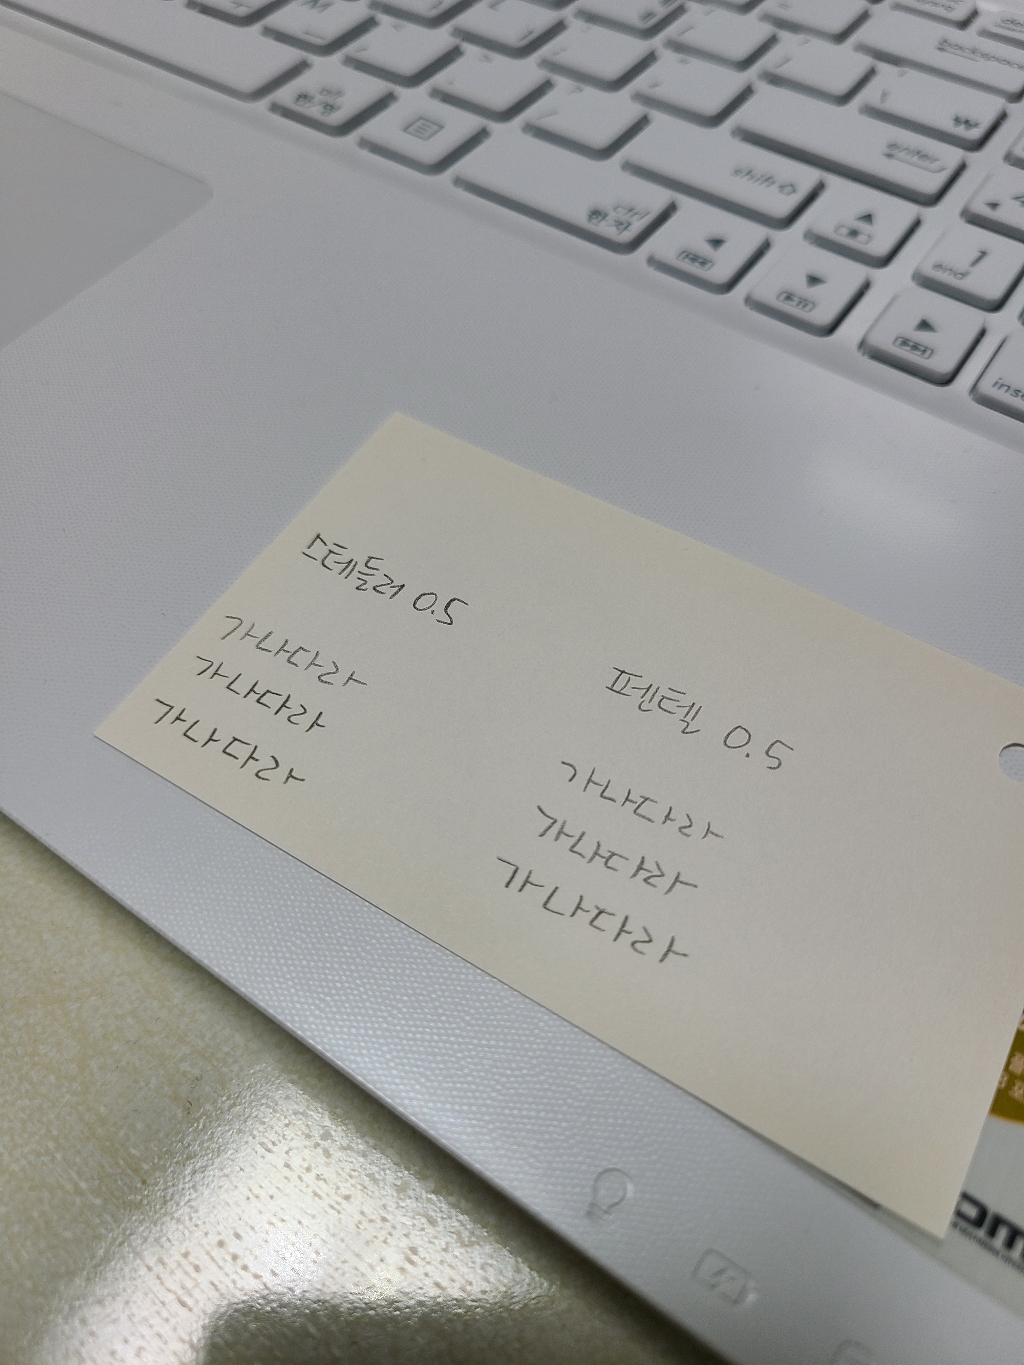 backspace
alt
한/영
₩
enter
shift ⇧
ctrl
한자
1
end
스테들러 0.5
가나다라
가나다라
가나다라
펜텔 0.5
가나다라
가나다라
가나다라